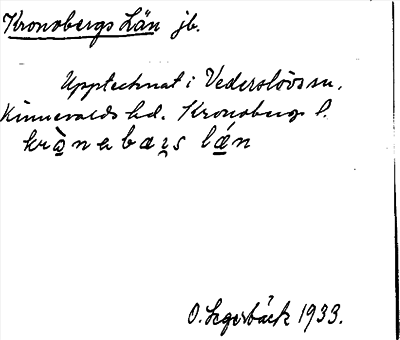 Kronobergs Län jb.
Upptecknat i Vederslövs sn.
Kinnevalds hd. Kronobergs l.
krò̲nabæ̲rs lǽ̲n
O. Segerbäck 1933.